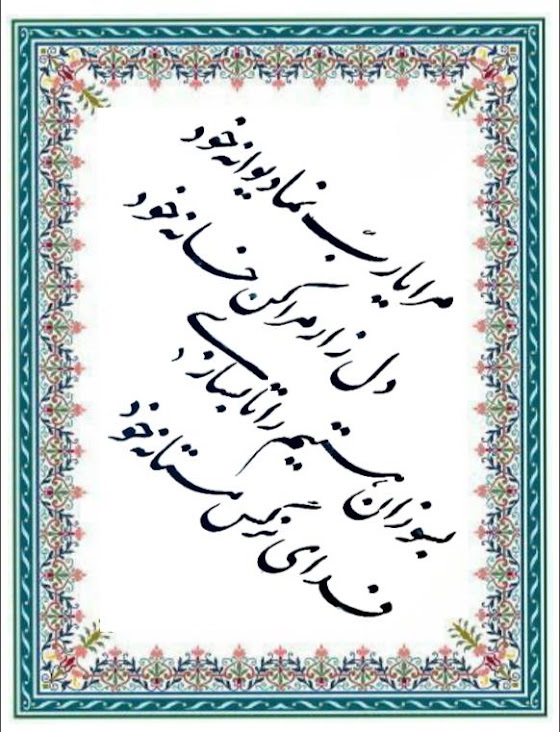 مرا یارب نما دیوانه خود
دل زار مرا کن خانه خود
بسوزان هستیم را تا بسازی
فدای نرگس مستانه خود